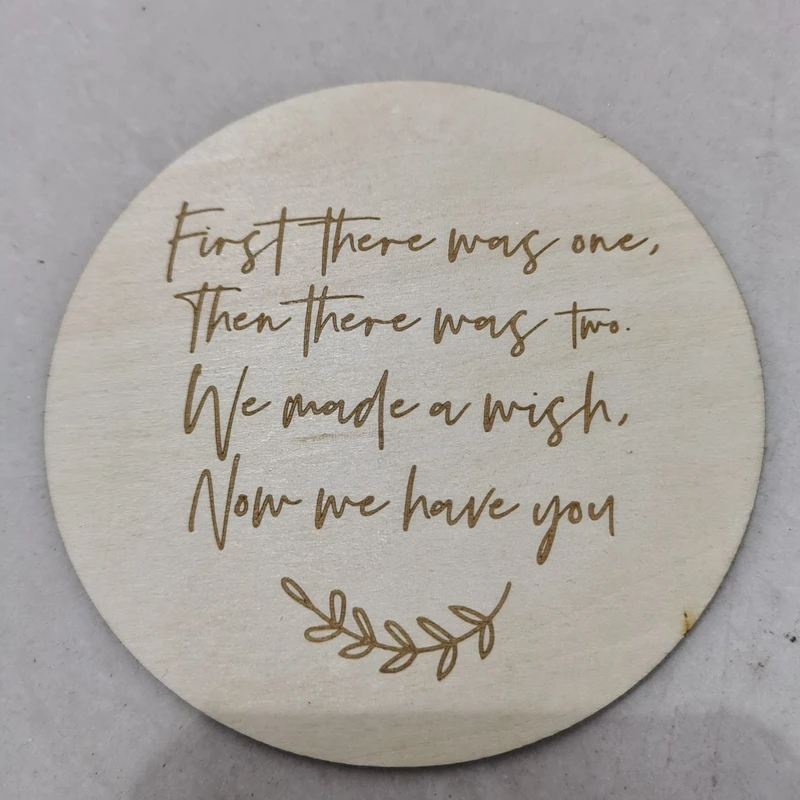 First there was one,
Then there was two.
We made a wish,
Now we have you